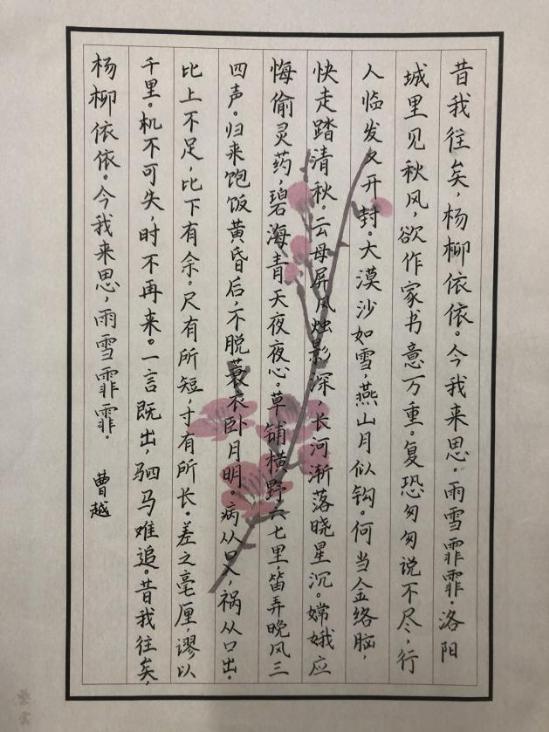 昔我往矣，杨柳依依。今我来思。雨雪霏霏。洛阳
城里见秋风，欲作家书意万重。复恐匆匆说不尽，行
人临发又开封。大漠沙如雪，燕山月似钩。何当金络脑，
快走踏清秋。云母屏风烛影深，长河渐落晓星沉。嫦娥应
悔偷灵药，碧海青天夜夜心。草铺横野六七里，笛弄晚风三
四声。归来饱饭黄昏后，不脱蓑衣卧月明。病从口入，祸从口出。
比上不足，比下有余。尺有所短，寸有所长。差之毫厘，谬以
千里。机不可失，时不再来。一言既出，驷马难追。昔我往矣，
杨柳依依。今我来思，雨雪霏霏。 曹越